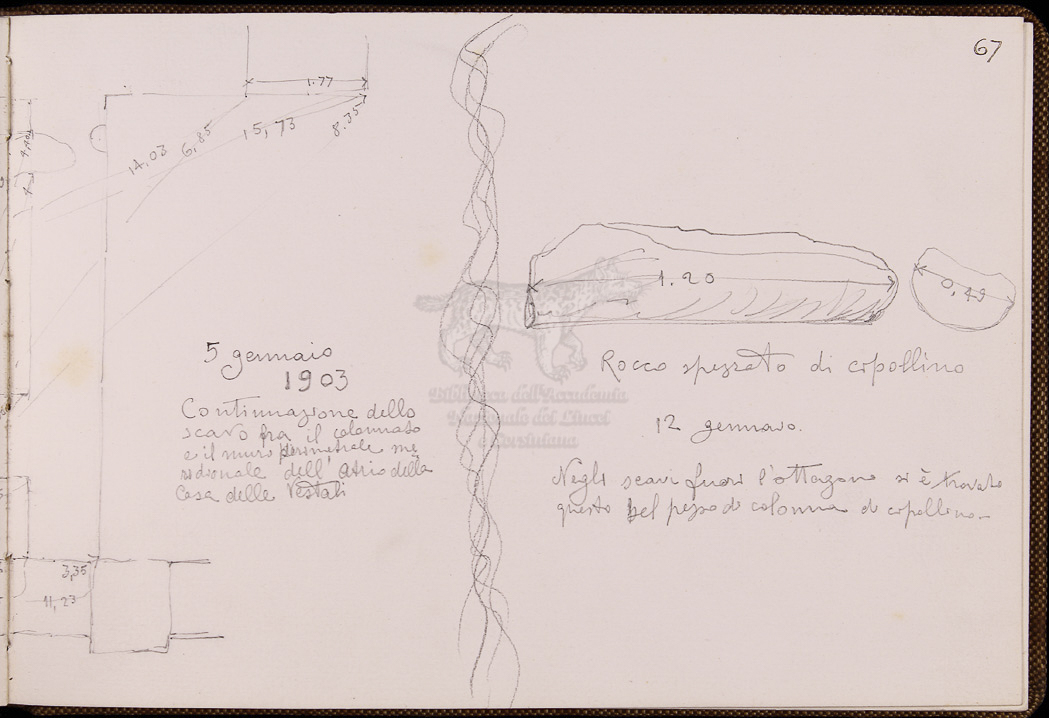 67
1.77
14,03
6,85
15,73
8.35
5 gennaio
1903
Continuazione dello
scavo fra il colonnato
e il muro perimetrale me
ridionale dell'Atrio della
Casa delle Vestali
3,35
11,23
1.20
0,49
Rocco spezzato di cipollino
12 gennaio.
Negli scavi fuori l'ottagono si è trovato
questo bel pezzo di colonna di cipollino-
Biblioteca dell'Accademia
Nazionale dei Lincei
e Corsiniana